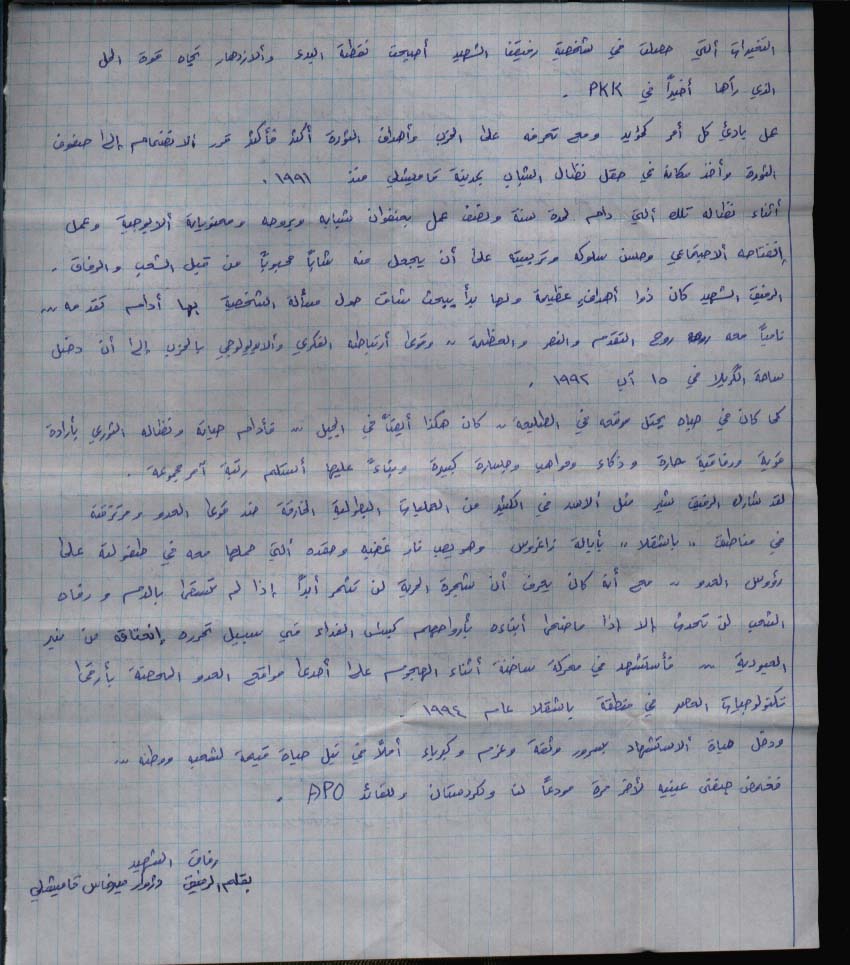 التغيرات ألتي حصلت في شخصية رفيقنا الشهيد أصبحت نقطة البدء وألازدهار تجاه قوة الحل
الذي رآها أخيراً في PKK .
عمل بادئ كل أمر كمؤيد ومع تعرفه على الحزب وأهداف الثورة أكثر فأكثر قرر الانضمام إلى صفوف
الثورة وأخذ مكانه في حقل نضال الشباب بمدينة قامشلي منذ ١٩٩١ .
أثناء نضاله تلك ألتي دام لمدة سنة ونصف عمل بعنفوان شبابه وبروحه ومعنوياته ألايوجية وعمل
إنفتاحه ألاجتماعي وحسن سلوكه وتربيته على أن يجعل منه شاباً محبوباً من قبل الشعب والرفاق .
الرفيق الشهيد كان ذوا أهدافٍ عظيمة ولها بدأ يبحث بشاق حول مسألة الشخصية بها أدام تقدمه ،،
نامياً معه روح التقدم والنصر والعظمة ،، وقوى أرتباطه الفكري وألايديولوجي بالحزب إلى أن دخل
ساحة الگريلا في ١٥ آب ١٩٩٢ .
كما كان في حياه يحتل موقعه في الطليعة ،، كان هكذا أيضاً في الجبل ،، فأدام حياته ونضاله الثوري بأرادة
قوية ورفاقية حارة وذكاء ومواهب وجسارة كبيرة وبناءً عليها أستلم رتبة آمر مجموعة .
لقد شارك الرفيق شير مثل ألاسد في الكثير من العمليات البطولية الخارقة ضد قوى العدو ومرتزقته
في مناطق ،، باشقلا ،، بأيالة زاغروس وهو يصب نار غضبه وحقده ألتي حملها معه في طفولته على
رؤوس العدو ،، مع أنه كان يعرف أن شجرة الحرية لن تثمر أبداً إذا لم تُسقى بالدم ورفاه
الشعب لن تحدث إلا إذا ماضحى أبناءه بأرواحهم كبش الفداء في سبيل تحرره إنعتاقه من نير
العبودية ،، فأستشهد في معركة ساخنة أثناء الهجوم على أحدى مواقع العدو المحصنة بأرقى
تكنولوجيات العصر في منطقة باشقلا عام ١٩٩٤ .
ودخل حياة ألاستشهاد بسرور وثقة وعزم وكبرياء أملاً في نيل حياة قيمة لشعبه ووطنه ،،
فغمض جفني عينيه لأخر مرة مودعاً لنا وكردستان وللقائد APO .
رفاق الشهيد
بقلم الرفيق قامشلي